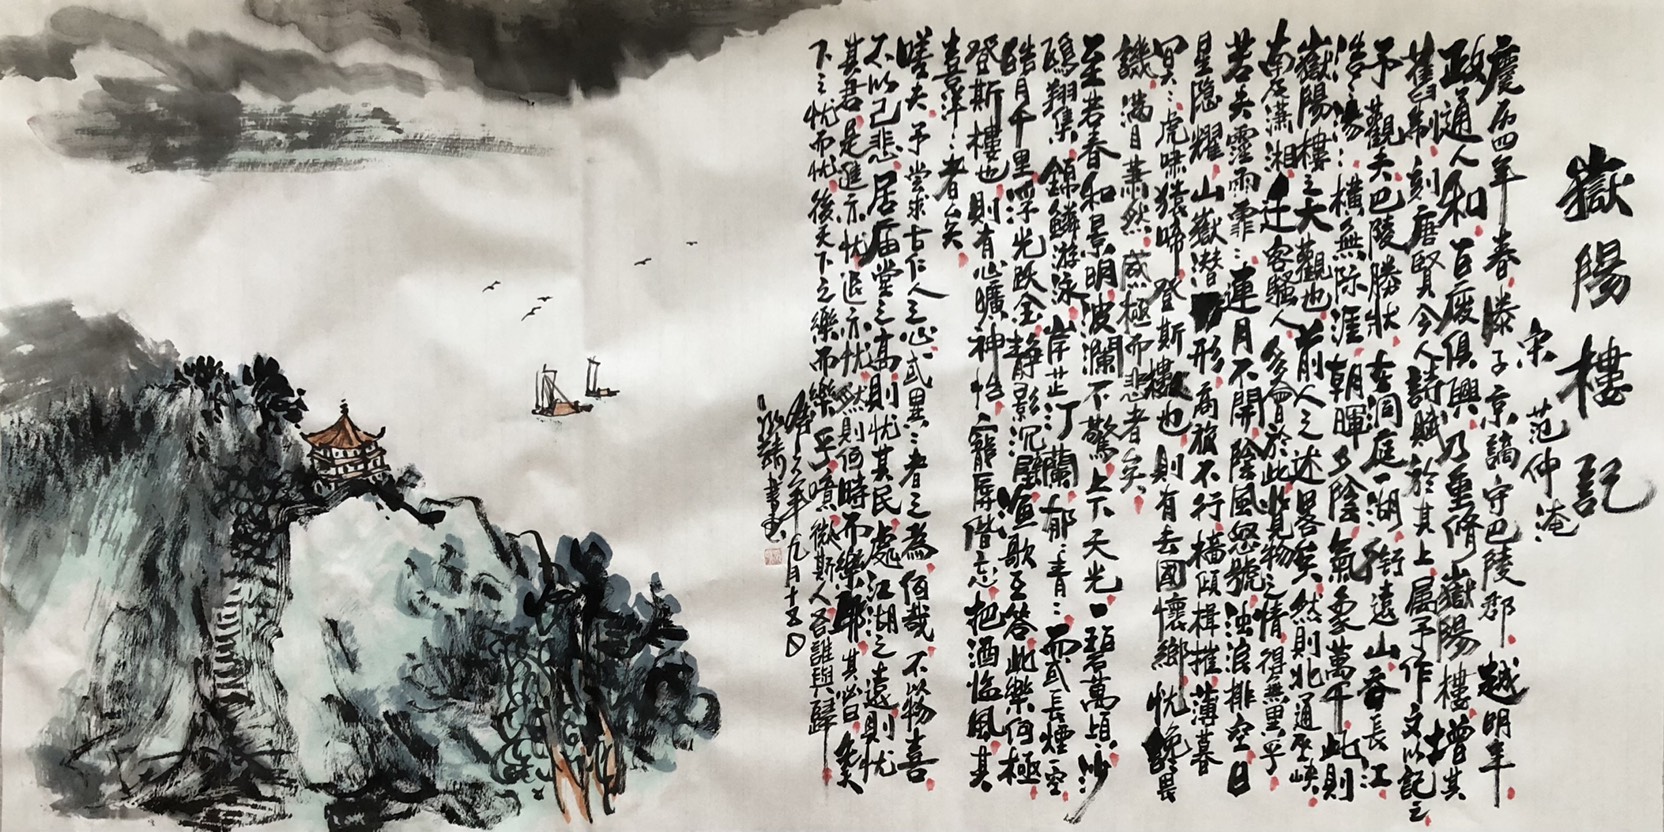 嶽陽樓記
宋 范仲淹
慶历四年春滕子京謫守巴陵郡越明年
政通人和百廢俱興乃重修嶽陽樓增其
舊制刻唐賢今人詩賦於其上属予作文以記之
予觀夫巴陵勝狀在洞庭一湖銜遠山吞長江
浩々湯々橫無际涯朝暉夕陰氣象萬千此則
嶽陽樓之大觀也前人之述畧矣然則北通巫峽
南極瀟湘迁客騷人多會於此览物之情得無異乎
若夫霪雨霏々連月不開陰風怒號浊浪排空日
星隐耀山嶽潜形商旅不行檣傾楫摧薄暮
冥々虎啸猿啼登斯樓也則有去國懷鄉忧讒畏
譏滿目蕭然感極而悲者矣
至若春和景明波瀾不驚上下天光一碧萬頃沙
鷗翔集錦鱗游泳岸芷汀蘭郁々青々而或長煙一空
皓月千里浮光跃金静影沉璧渔歌互答此樂何極
登斯樓也則有心曠神怡寵辱偕忘把酒临風其
喜洋々者矣
嗟夫予尝求古仁人之心或異二者之為何哉不以物喜
不以己悲居庙堂之高則忧其民處江湖之遠則忧
其君是進亦忧退亦忧然則何時而樂耶其必曰先天
下之忧而忧後天下之樂而樂乎噫微斯人吾誰與歸
年九月十五日
書